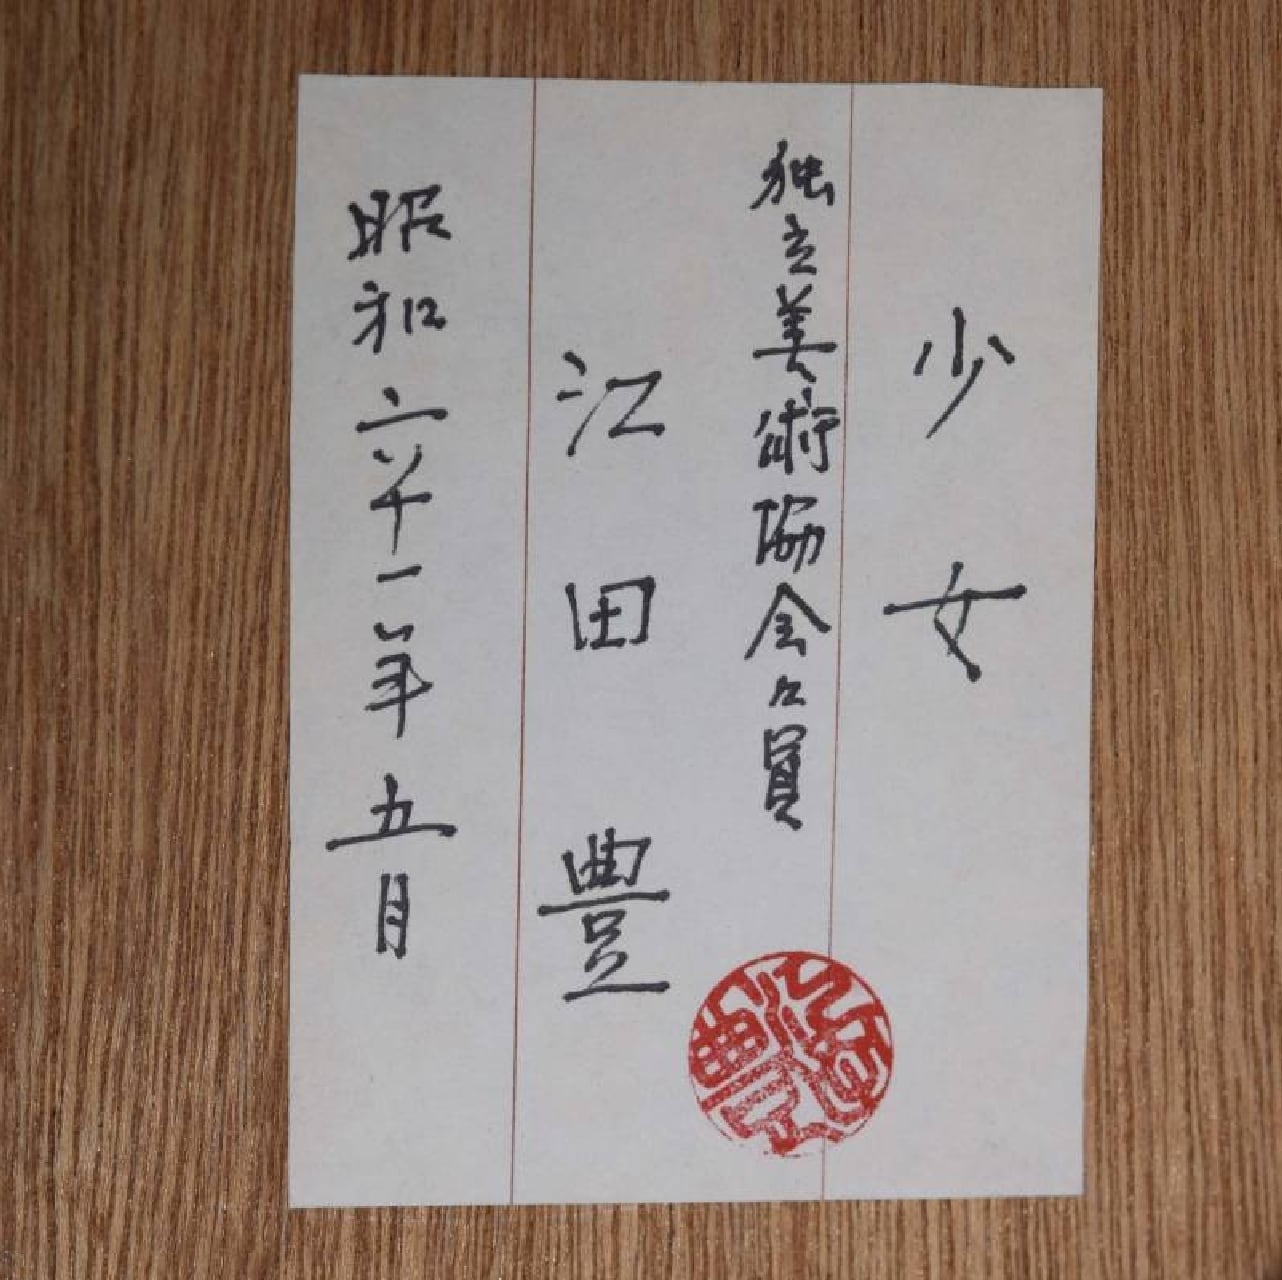 少女
独立美術協会々員
江田豊
昭和六十一年五月